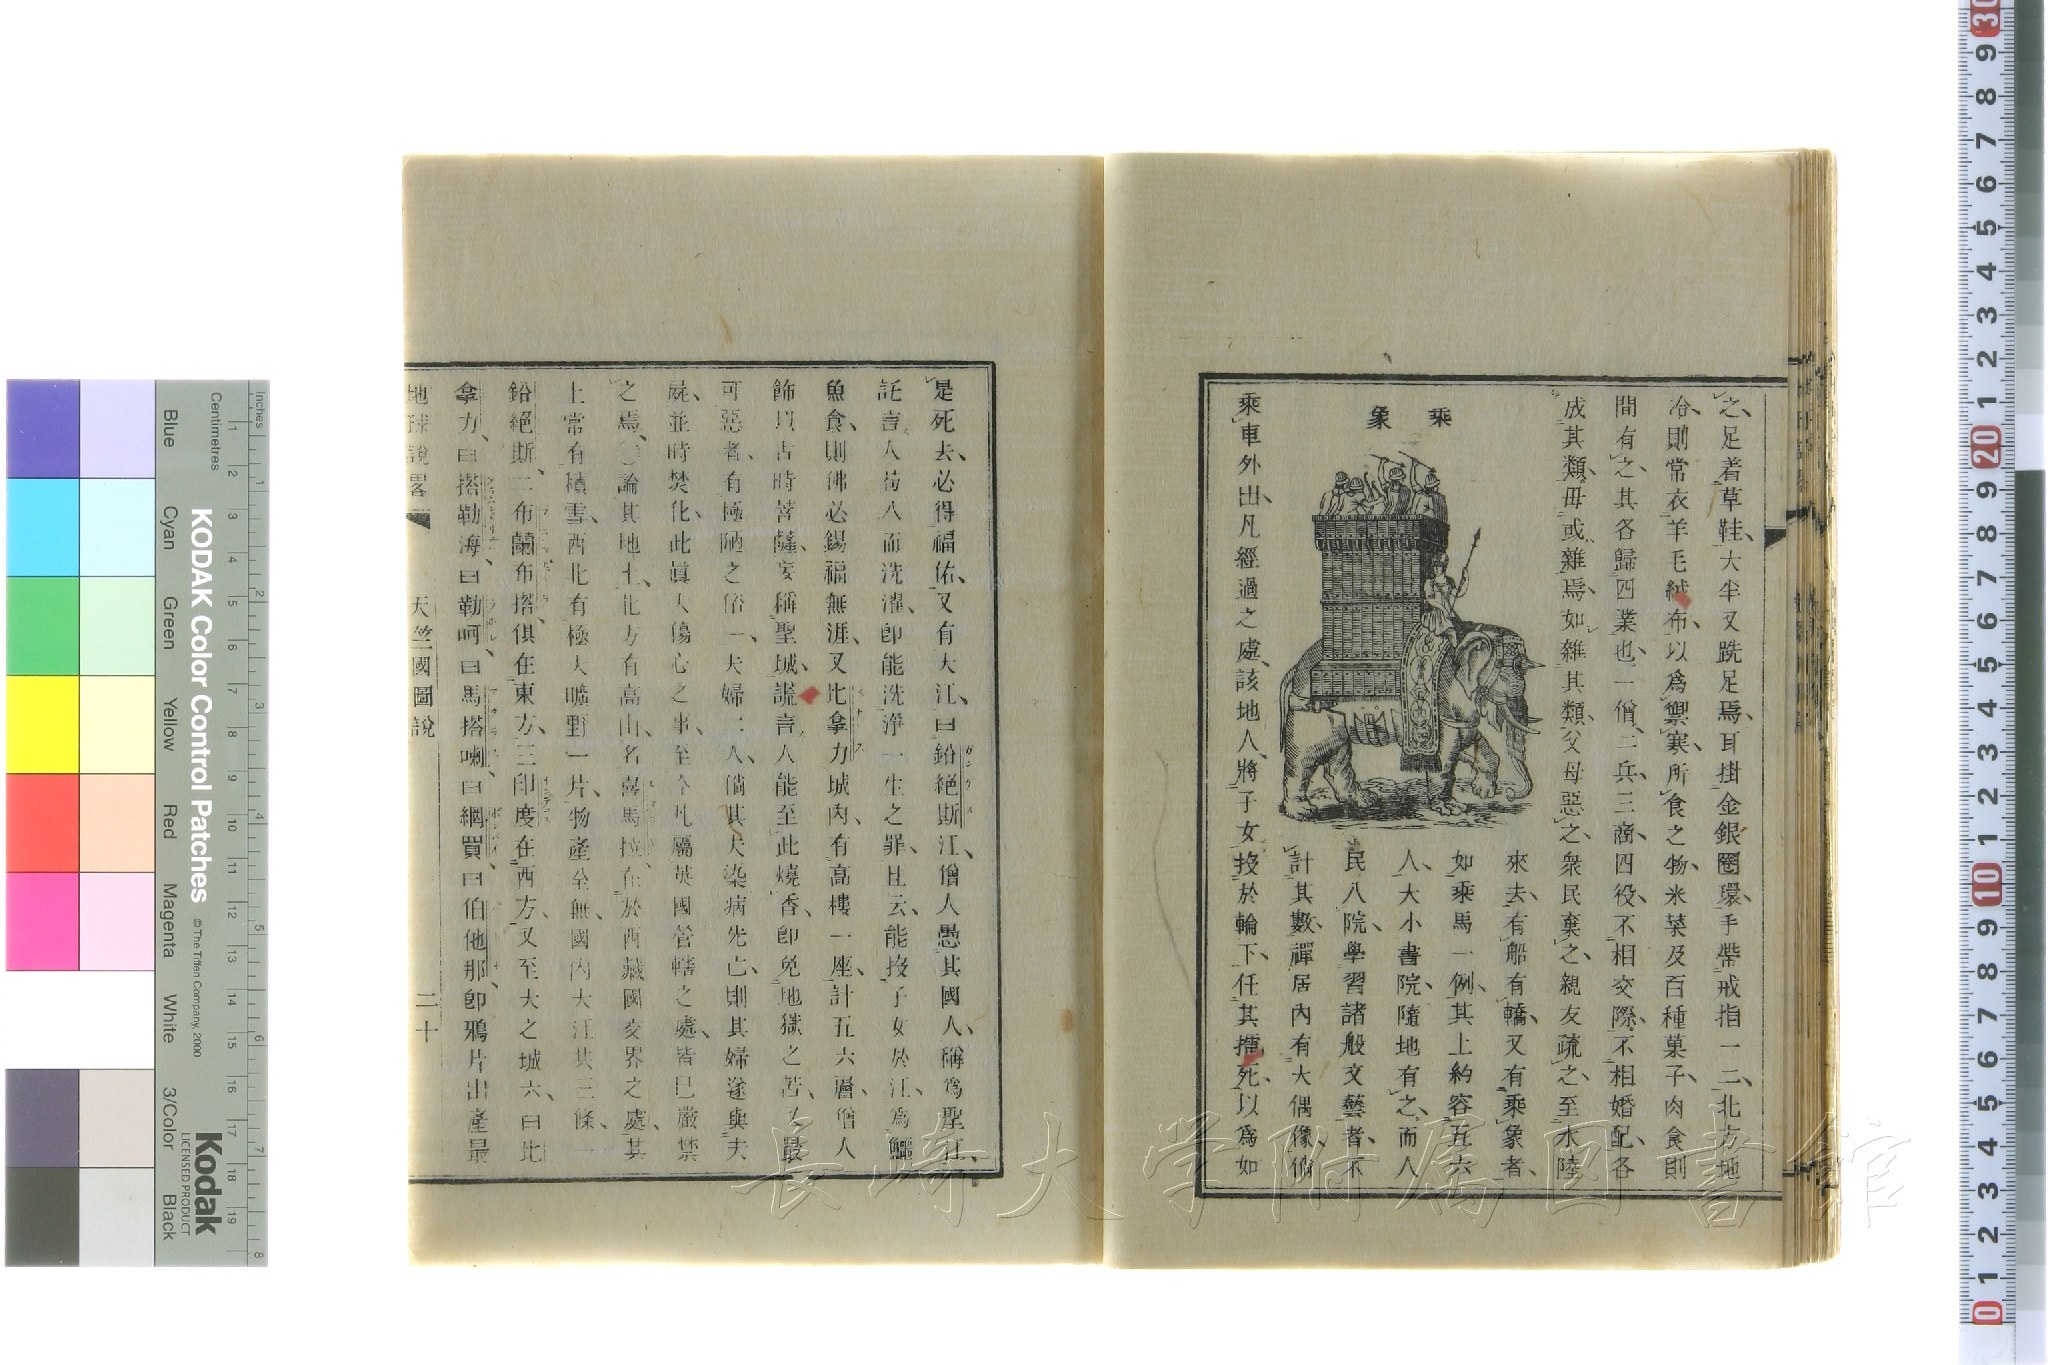 之、足着草鞋、大半又跣足焉、耳掛金銀圈環、手帶戒指一二、北方地
冷、則常衣羊毛絨布、以爲禦寒、所食之物、米菜及百種菓子、肉食則
間有之、其各歸四業也、一僧、二兵、三商、四役、不相交際、不相婚配、各
成其類、毋或雜焉、如雜其類、父母惡之、衆民棄之、親友疏之、至水陸
乘象
來去、有船有轎、又有乘象者、
如乘馬一例、其上約容五六
人、大小書院、隨地有之、而人
民入院、學習諸般文藝者、不
計其數、禪居內有大偶像、偷
乘車外出、凡經過之處、該地人、將子女投於輪下、任其擂死、以爲如
是死去、必得福佑、又有大江、曰鉛絕斯江、僧人愚其國人、稱爲聖江、
託言人苟入而洗濯、卽能洗淨一生之罪、且云、能投子女於江、爲鱷
魚食、則佛必錫福無涯、又比拿力城內、有高樓一座、計五六層、僧人
飾以古時菩薩、妄稱聖城、謊言人能至此燒香、卽免地獄之苦、又最
可惡者、有極陋之俗一、夫婦二人、倘其夫染病先亡、則其婦遂與夫
屍、並時焚化、此眞大傷心之事、至今凡屬英國管轄之處、皆已嚴禁
之焉、〇論其地土、北方有高山、名喜馬拉、在於西藏國交界之處、其
上常有積雪、西北有極大曠野一片、物產全無、國內大江共三條、一
鉛絕斯、二布蘭布搭、俱在東方、三印度在西方、又至大之城六、曰比
拿力、曰搭勒海、曰勒呵、曰馬搭喇、曰綱買、曰伯他那、卽鴉片出產最
地球說畧
天竺國圖說
二十
長崎大学附属図書館
KODAK Color Control Patches
© The Tiffen Company, 2000
Kodak
LICENSED PRODUCT
Inches
Centimetres
Blue Cyan Green Yellow Red Magenta White 3/Color Black